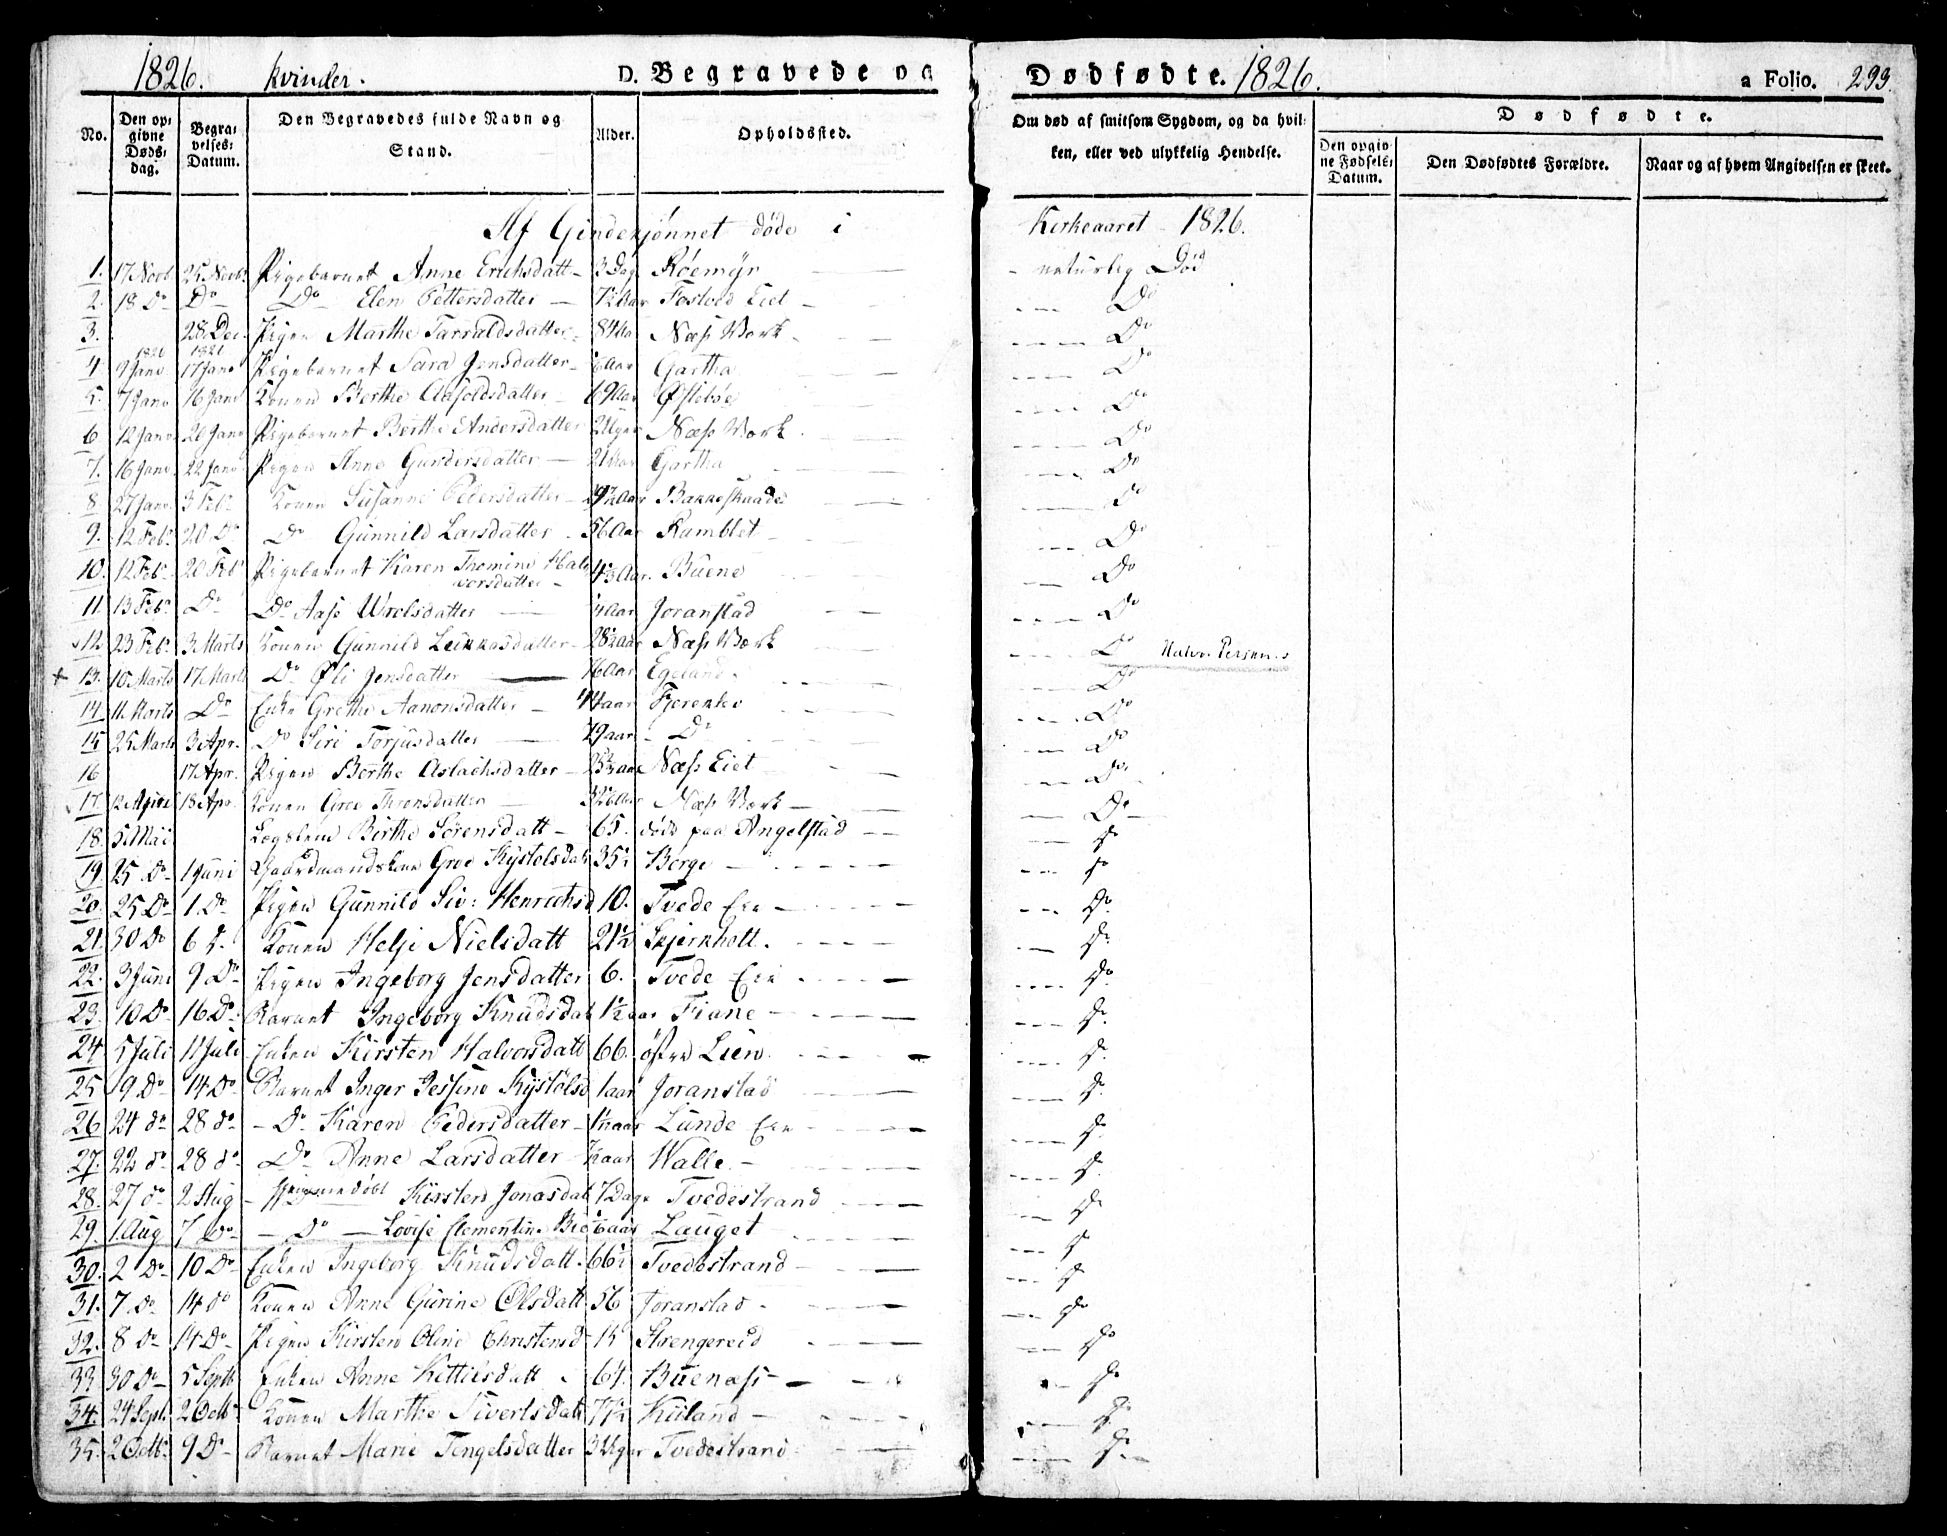 1826. Kvinder. D. Begravede og Dødfødte. 1826. a Folio. 293.
No. Den opgivne Dødsdag. Begravelses Datum. Den Begravedes fulde Navn og Stand. Alder. Opholdssted. Om død af smitsom Sygdom, og da hvilken, eller ved ulykkelig Hendelse. Dødfødte. Den opgivne Fødsels Datum. Den Dødfødtes Forældre. Naar og af hvem Angivelsen er skeet.
Af Qindekjønnet døde i Kirkeaaret 1826.
1. 17 Novb 25 Novb. Pigebarnet Anne Erichsdatt 3 Dag Røemyr naturlig Død
2. 18 Do Do Do Elen Pettersdatter Fosteved Eiet Do
3. 28 Dec. Pigen Marthe Tarraldsdatter 84 Aar Næss Værk Do
1826 1826
4 9 Janv 17 Janv Pigebarnet Sara Jensdatter Gartha Do
5. 7 Janv 16 Janv Konen Berthe Aasoldsdatter 69 Aar Østebøe Do
6 12 Janv 20 Janv Pigebarnet Berthe Andersdatter Næss Værk Do
7. 16 Janv. 22 Janv Pigen Anne Gundersdatter Gartha Do
8 27 Janv. 3 Feb. Konen Susanne Pedersdatter Bakkeskaade Do
9. 12 Feb. 20 Do Do Gunnild Larsdatter 56 Aar Ramblet Do
10. 12 Feb. 20 Feb Pigebarnet Karen Thomine Halvorsdatter Buene Do
11. 13 Feb. Do Do Aase Wrolsdatter Joranstad Do
12. 23 Feb. 3 Marts Konen Gunnild Leikkasdatter 28½ aar Næss Værk Do
+ 13. 10 Marts 17 Marts Do Øli Jensdatter Egeland Do
14. 11 Marts Do Enke Grethe Aanonsdatter Fjerenkiv Do
15 25 Marts 3 Apr. Do Siri Torjusdatter 79 aar Do Do
16 17 Apr. Pigen Berthe Aslachsdatter Næss Eiet Do
17. 12 April 18 Apr. Konen Groe Thronsdatter Næss Værk Do
18. 5 Mai Birthe Sørensdatt 65. død paa Angelstad do
19. 25 Do 1 Juni Gaardmandskone Groe Kystolsdat 35½ Berge do
20. 25 Do 1. Do Pigen Gunnild Siv: Henrichsd 10. Tvede Eie do
21. 30 Do 6 d. Konen Helje Nielsdatt 21½ Skjernholt. do
22. 3 Juni 9 Do Pigen Ingeborg Jensdatter 6. Tvede Eie do
23. 10 Do 16 Do Barnet Ingeborg Knudsdat 1½ aar Fiane do
24 5 Juli 11 Juli Enken Kirsten Halvorsdatt 66. østre Lien. do
25 9 Do 14 Do Barnet Inger Jessine Kystolsd 1 aar Joranstad do
26 24 do 28 do Do Karen Pedersdatter 1½ aar Lunde Eie do
27. 22 do 28 do Do Anne Larsdatter ½ aar Walle. do
28. 27 do 2 Aug hjemmedøbt Kirsten Jonasdat 7 Dage Tvedestrand do
29. 1. Aug 7 Do Do Lovise Clementine Lauget do
30. 2 Do 10 Do Enken Ingeborg Knudsdatt. 66½ Tvedestrand do
31. 7. do 14 do Konen Anne Gurine Olsdatt 56 Joranstad do
32. 8 Do 14 Do Pigen Kirsten Oline Christensd 15 Strengereid do
33 30 Do 5 Septb Enken Anne Kittilsdatt 64. Buenæss do
34. 24 Septb. 2 Octb. Konen Marthe Sivertsdatt 77½ Kiiland do
35. 2 Octb. 9 Do Barnet Marie Tengelsdatter 3 Uger Tvedestrand do